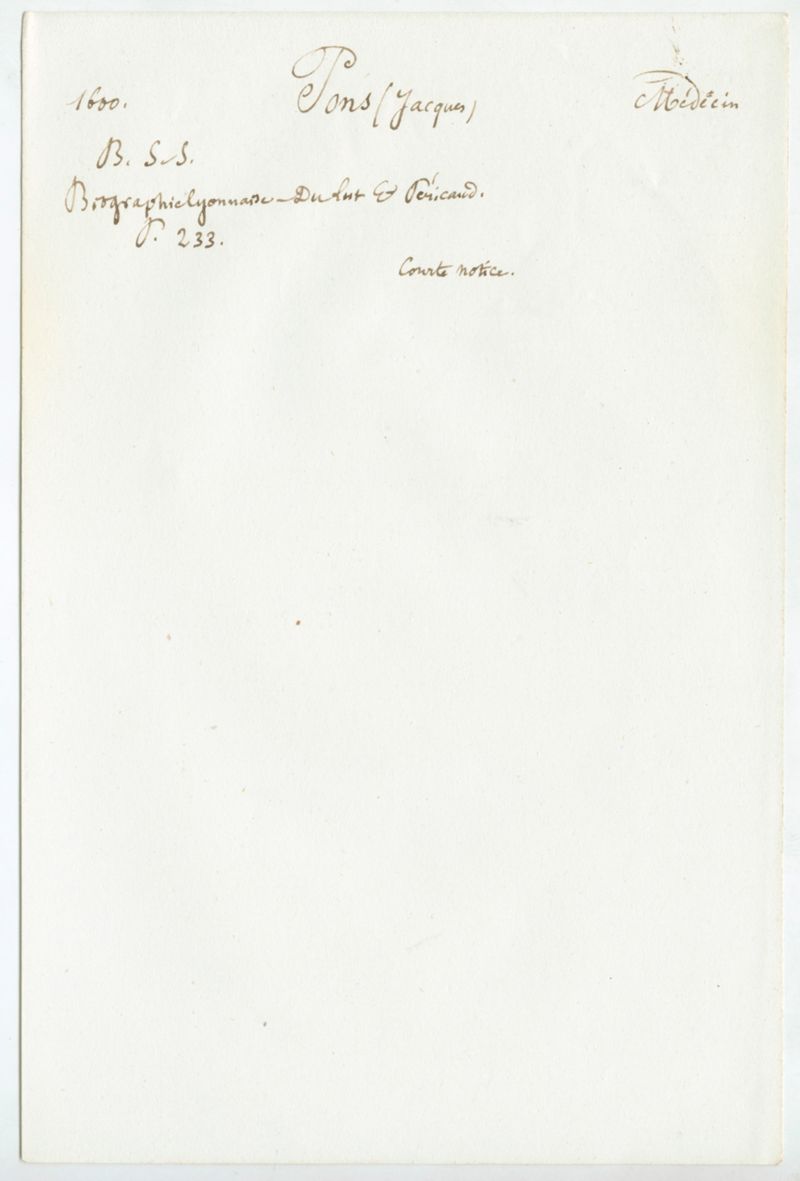 1600. Pons (Jacques) Médecin
B. S. S.
Biographie lyonnaise - Du lut & Péricaud.
P. 233.
Courte notice.